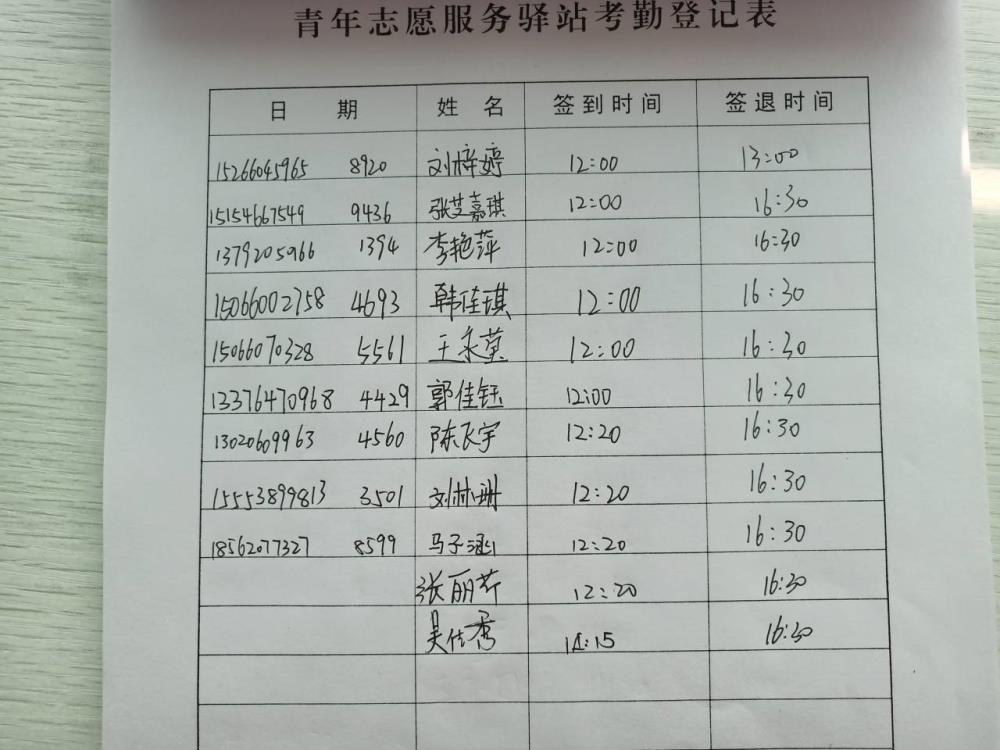 青年志愿服务驿站考勤登记表
日 期 姓 名 签到时间 签退时间
15266045965 8920 刘梓婷 12:00 13:00
15154667549 9436 张艾嘉琪 12:00 16:30
13792050966 1394 李艳萍 12:00 16:30
15066002758 4693 韩佳琪 12:00 16:30
15066070328 5561 王采莫 12:00 16:30
13376470968 4429 郭佳钰 12:00 16:30
13020609963 4560 陈飞宇 12:20 16:30
15553899813 3501 刘林珊 12:20 16:30
18562077327 8599 马子涵 12:20 16:30
张丽芹 12:20 16:30
吴佳秀 14:15 16:30